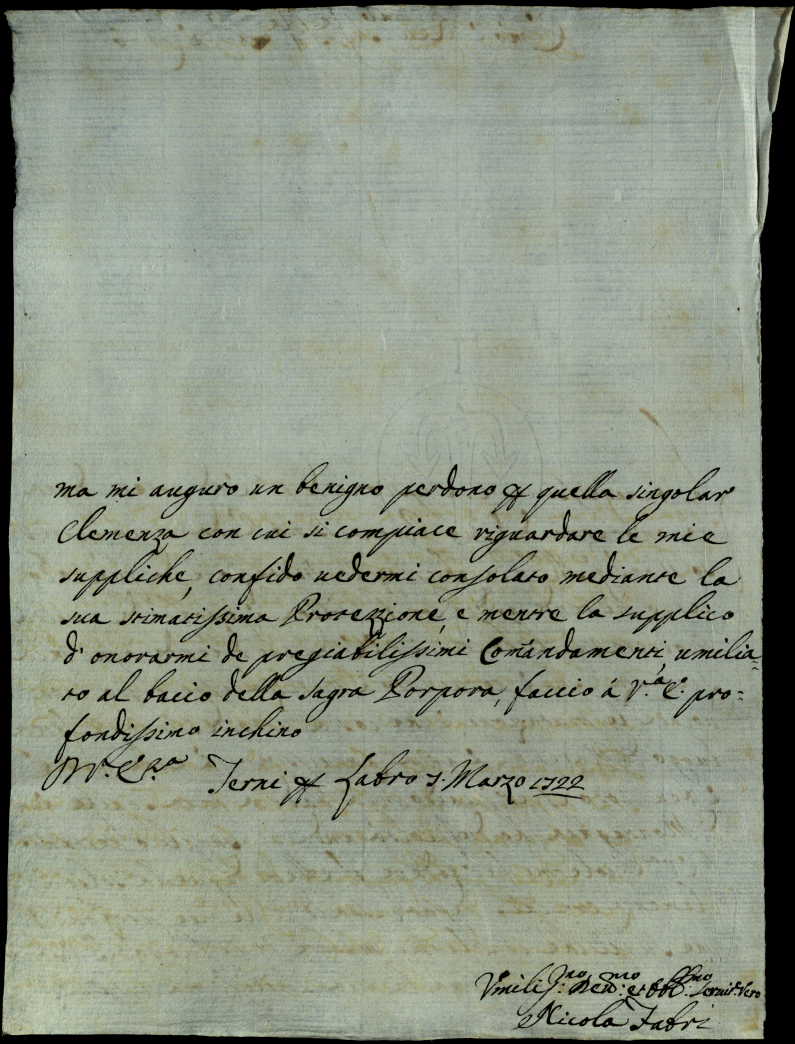 ma mi auguro un benigno perdono p quella singolar
Clemenza con cui si compiace riguardare le mie
suppliche, confido uedermi consolato mediante la
sua stimatissima Protezzione, e mentre la supplico
d'onorarmi de pregiabilissimi Comandamenti, umilia=
to al bacio della sagra Porpora, faccio á V.ª E. pro=
fondissimo inchino
Terni p Labro 7. Marzo 1722
Umiliss.mo Deu.mo et Obb.mo Seruit.e Vero
Nicola Fabri